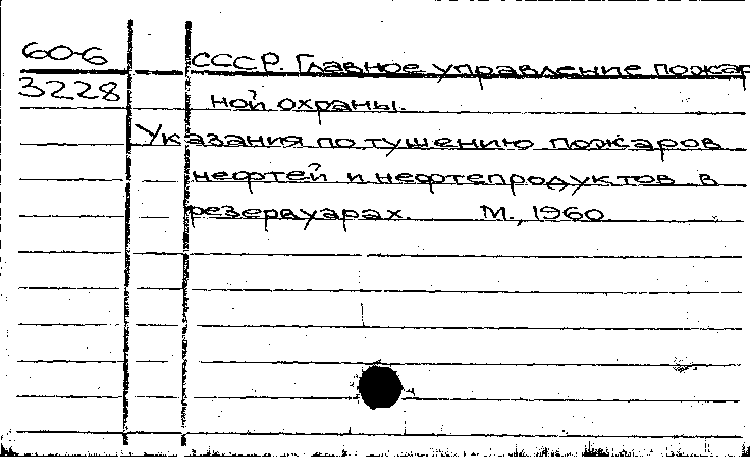 60-6 СССР. Главное управление пожар
3228 ной охраны.
Указания по тушению пожаров
нефтей и нефтепродуктов в
резервуарах. М., 1960